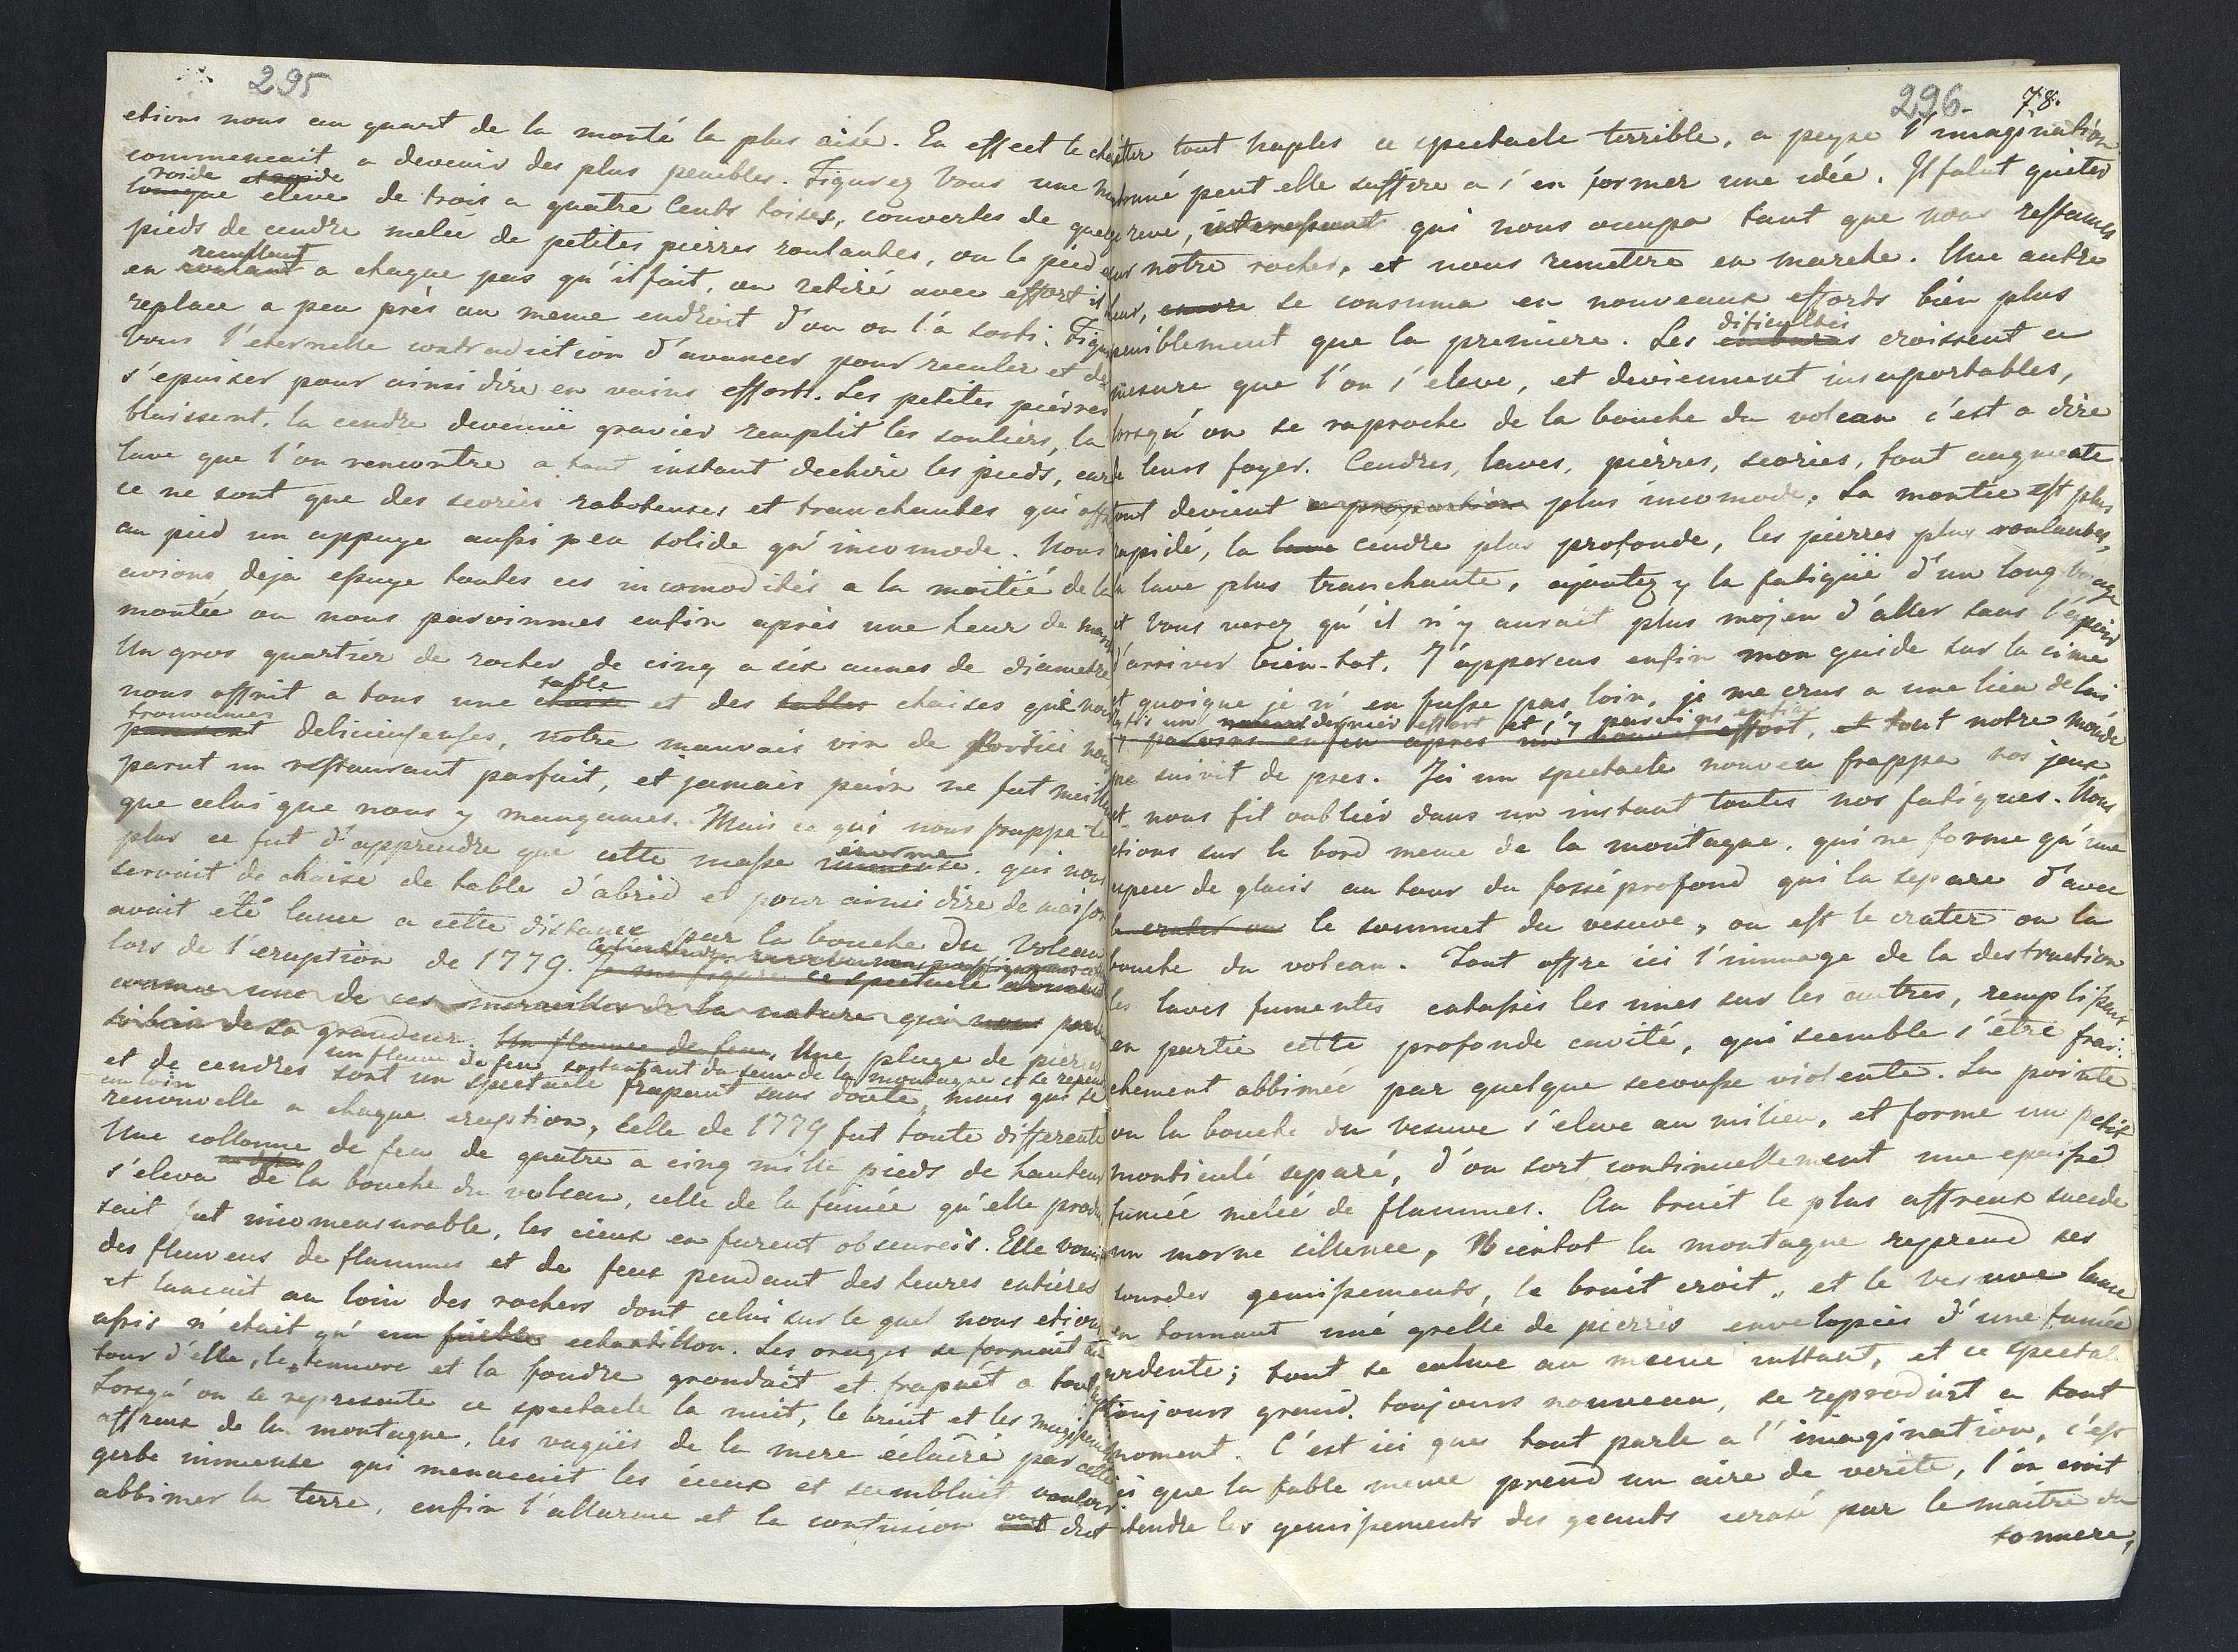 295
etions nous au quart de la monté la plus aisé. En effect le che
commencait a devenir des plus penibles. Figurez Vous une
roide et roide
longue eleve de trois a quatre Cents toises, couvertes de quelq
pieds de cendre melée de petites pierres roulantes, ou le pied
remplant
en roulant a chaque pas qu'il fait, on retiré avec effort il
replace a peu près au meme endroit d'ou on l'a sorti. Figu
Vous l'eternelle contradiction d'avancer pour reculer et de
s'epuiser pour ainsi dire en vains efforts. Les petites pierres
blaissent, la cendre devenüe gravier remplit les souliers, la
lave que l'on rencontre a tout instant dechire les pieds, car
ce ne sont que des scories raboteuses et tranchantes qui off
au pied un appuye aussi peu solide qu'incomode. Nous
avions deja essuye toutes ces incomodités a la moitié de la
montée ou nous parvinmes enfin après une heur de mar
Un gros quartier de rocher de cinq a six aunes de diametre
table
nous offrit a tous une chaise et des tables chaises que nou
trouvames
parurent delicieuses, notre mauvais vin de Portici nou
parut un restaurant parfait, et jamais pain ne fut meill
que celui que nous y mangames. Mais ce qui nous frappe le
plus ce fut d'apprendre que cette masse
enorme
immense, qui nous
servait de chaise de table d'abrid et pour ainsi dire de maison
avait été lancé a cette distance par la bouche du Volcan
lors de l'eruption de 1779. Je me figure ce spectacle
comme une de ces merveilles de la nature qui nous
si loin de sa grandeur. Un fleuve de feu, Une pluye de pierres
un fleuve de feu sortant du sein de la montagne et se repen
et de cendres sont un spectacle frapant sans doute, mais qui se
au loin
renouvelle a chaque eruption, Celle de 1779 fut toute differente
Une collonne de feu de quatre a cinq mille pieds de hauteur
s'eleva de la bouche du volcan, celle de la fumée qu'elle produ
sait fut incomensurable, les cieux en furent obscurcis. Elle vomi
des fleuves de flammes et de feux pendant des heures entieres
et lancait au loin des rochers dont celui sur le quel nous etions
assis n'était qu'un faible echantillon. Les orages se formait au
tour d'elle, le tonnere et la foudre grondait et frapait a tout
Lorsqu'on se represente ce spectacle la nuit, le bruit et les mugissem
affreux de la montagne, les vagues de la mere éclairé par cette
gerbe immense qui menacait les cieux et semblait vouloir
abbimer la terre, enfin l'allarme et la confusion
296-
78.
etter tout Naples ce spectacle terrible, a peyne l'imagination
donné peut elle suffire a s'en former une idée. Il falut quiter
reve, interessant qui nous ocupa tant que nous restames
sur notre rocher, et nous remettre en marche. Une autre
heur, encore se consuma en nouveaux efforts bien plus
dificultés
peniblement que la premiere. Les croissent a
mesure que l'on s'eleve, et deviennent insuportables,
lorsqu'on se raproche de la bouche du volcan c'est a dire
de leurs foyer. Cendres, laves, pierres, scories, tout augmente
tout devient en proportion plus incomode. La montée est plus
rapide, la lave cendre plus profonde, les pierres plus roulantes,
la lave plus tranchante, ajoutez y la fatigüe d'un long voiage
et Vous verez qu'il n'y aurait plus mojen d'aller sans l'espoir
d'arriver bien-tot. J'appercus enfin mon guide sur la cime
et quoique je n'en fusse pas loin, je me crus a une lieu de lui
fis un nouveau dernier effort et j'y parvins enfin
j'y parvins enfin apres un nouvel effort, et tout notre monde
me suivit de pres. Ici un spectacle nouveau frappa nos jeux
et nous fit oublier dans un instant toutes nos fatigues. Nous
etions sur le bord meme de la montagne, qui ne forme qu'une
espece de glacis au tour du fossé profond qui la separe d'avec
le crater ou le sommet du vesuve, ou est le crater ou la
bouche du volcan. Tout offre ici l'immage de la destruction
les laves fumentes entassés les unes sur les autres, remplissent
en partie cette profonde cavité, qui semble s'être frai:
chement abbimée par quelque secousse violente. La pointe
ou la bouche du vesuve s'eleve au milieu, et forme un petit
monticulé separé, d'ou sort continuellement une epaisse
fumée melée de flammes. Au bruit le plus affreux succede
un morne cillence, Bientot la montagne reprend ses
sourdes gemissements, le bruit croit, et le vesuve lance
en tonnant une grelle de pierres envelopées d'une fumée
ardente; tout se calme au meme instant, et ce spectac
toujours grand, toujours nouveau, se reproduist a tout
moment. C'est ici que tout parle a l'imagination, c'est
ici que la fable meme prend un aire de verite, l'on croit
entendre les gemissements des geants ecrasé par le maitre du
tonnere,